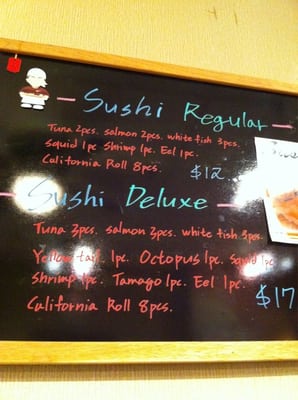 Sushi Regular
Tuna 2pcs. salmon 2pcs. white fish 3pcs.
squid 1pc shrimp 1pc. Eel 1pc.
California Roll 8pcs.
$12
Sushi Deluxe
Tuna 3pcs. salmon 3pcs. white fish 3pcs.
Yellow tail 1pc. Octopus 1pc. squid 1pc.
shrimp 1pc. Tamago 1pc. Eel 1pc.
California Roll 8pcs.
$17